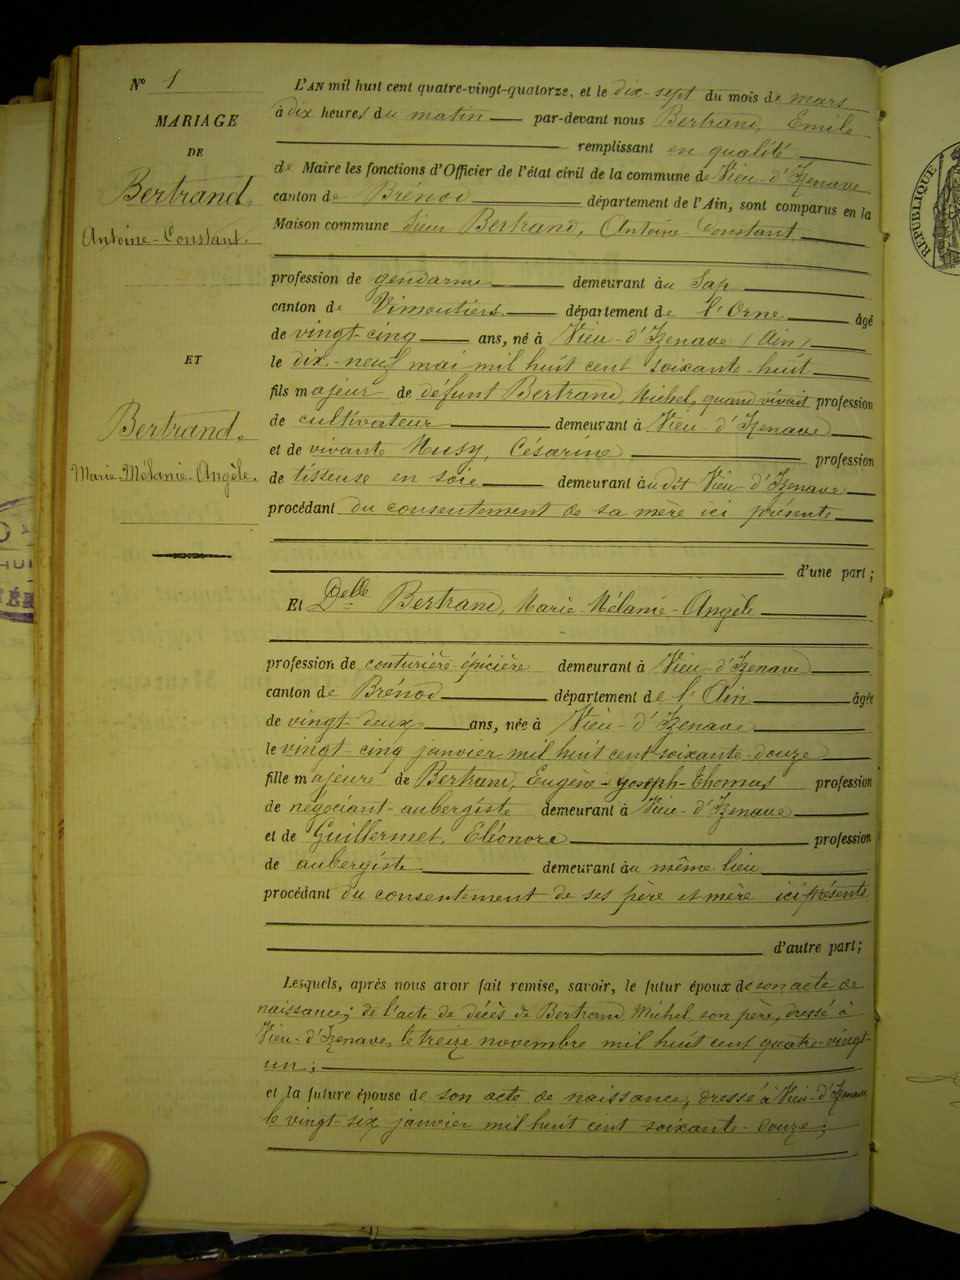 N° 1
MARIAGE
DE
Bertrand,
Antoine-Constant.
ET
Bertrand.
Marie-Mélanie-Angèle.
L'AN mil huit cent quatre-vingt-quatorze, et le dix-sept du mois de mars
à dix heures du matin par-devant nous Bertrand, Emile
remplissant en qualité
de Maire les fonctions d'Officier de l'état civil de la commune de Vieu-d'Izenave
canton de Brénod département de l'Ain, sont comparus en la
Maison commune Sieur Bertrand, Antoine-Constant
profession de gendarme demeurant au Sap
canton de Vimoutiers département de l'Orne âgé
de vingt-cinq ans, né à Vieu-d'Izenave (Ain)
le dix-neuf mai mil huit cent soixante-huit
fils majeur de défunt Bertrand, Michel, quand vivait profession
de cultivateur demeurant à Vieu-d'Izenave
et de vivante Musy, Césarine profession
de tisseuse en soie demeurant audit Vieu-d'Izenave
procédant du consentement de sa mère ici présente
d'une part;
Et Delle Bertrand, Marie-Mélanie-Angèle
profession de couturière-épicière demeurant à Vieu-d'Izenave
canton de Brénod département de l'Ain âgée
de vingt-deux ans, née à Vieu-d'Izenave
le vingt-cinq janvier mil huit cent soixante-douze
fille majeure de Bertrand, Eugène-Joseph-Thomas profession
de négociant-aubergiste demeurant à Vieu-d'Izenave
et de Guillermet, Eléonore profession
de aubergiste demeurant au même lieu
procédant du consentement de ses père et mère ici présents
d'autre part;
Lesquels, après nous avoir fait remise, savoir, le futur époux de son acte de
naissance; de l'acte de décès de Bertrand Michel son père, dressé à
Vieu-d'Izenave, le treize novembre mil huit cent quatre-vingt-
un;
et la future épouse de son acte de naissance, dressé à Vieu-d'Izenave
le vingt-six janvier mil huit cent soixante-douze;
RÉPUBLIQUE